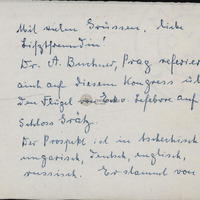 Mit vielen Grüssen, liebe
Lisztfreundin!
Dr. A. Buchner, Prag referier
auch auf diesem Kongress üb
den Flügel von Exko. Lefebore auf
Schloss Grätz.
Der Prospekt ist in tschechisch
ungarisch, deutsch, englisch,
russisch. Er stammt von